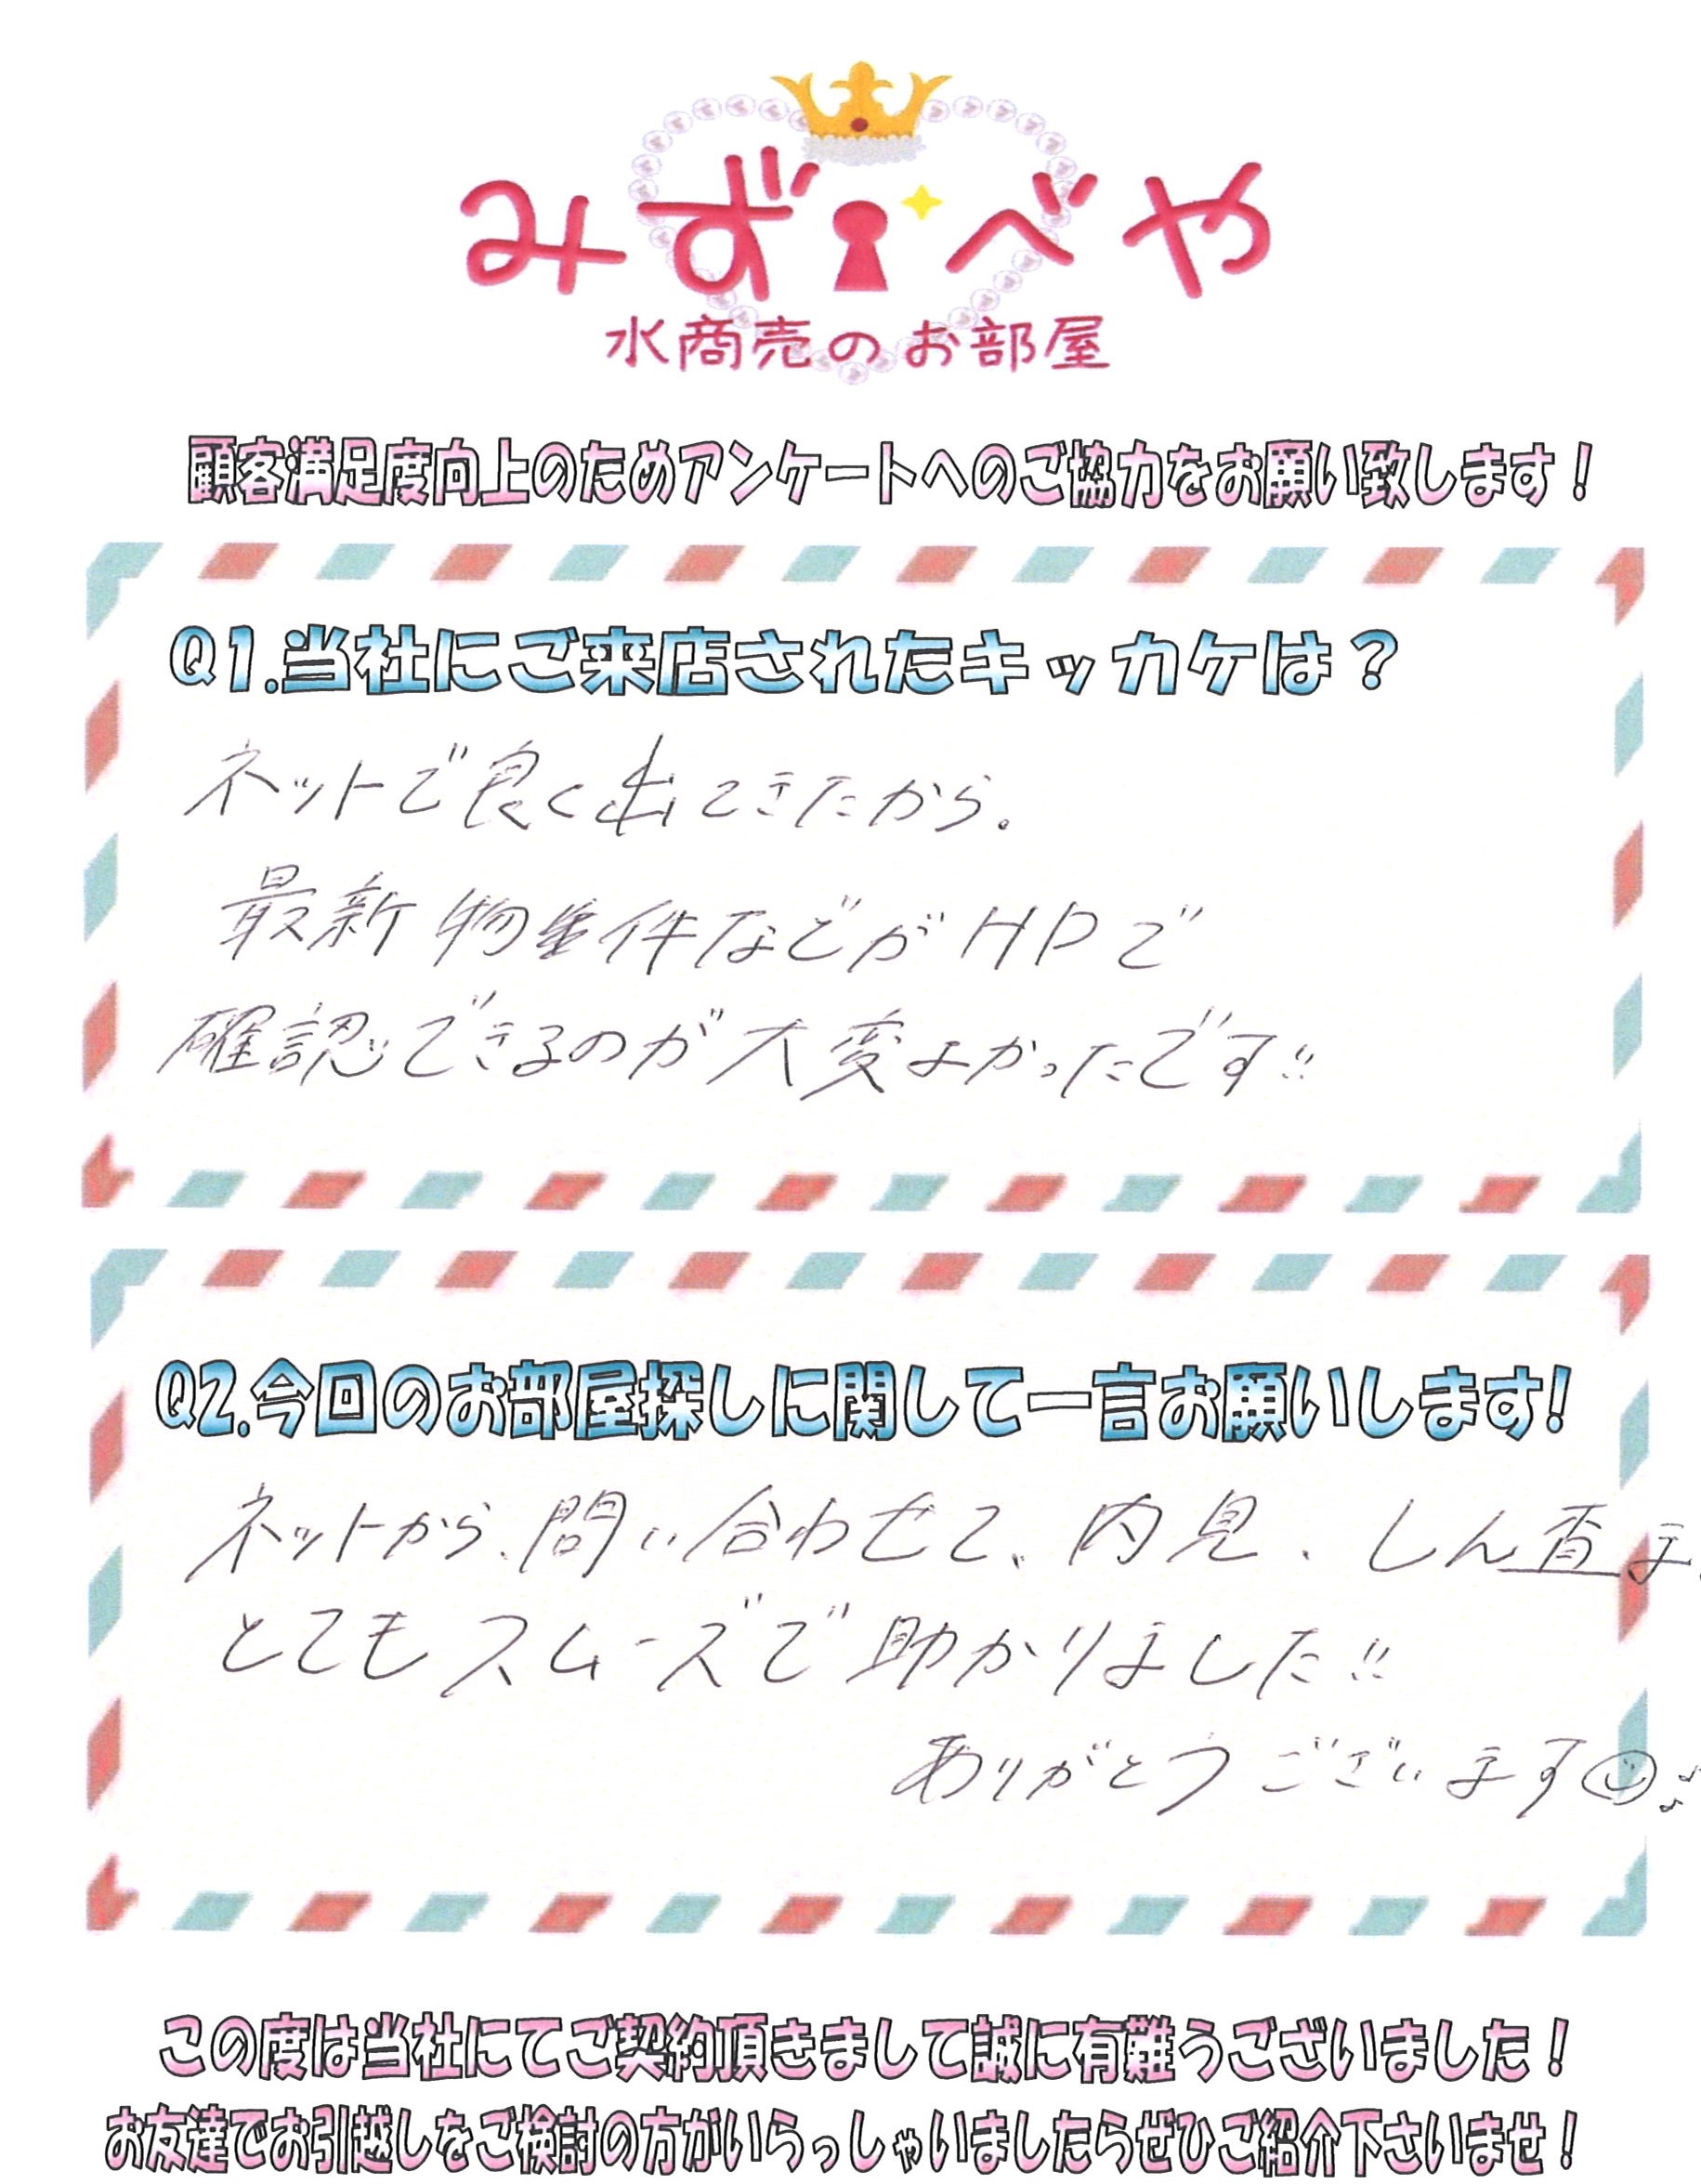 みず べや
水商売のお部屋
顧客満足度向上のためアンケートへのご協力をお願い致します！
Q1.当社にご来店されたキッカケは？
ネットで良く出てきたから。
最新物件などがHPで
確認できるのが大変よかったです!!
Q2.今回のお部屋探しに関して一言お願いします!
ネットから、問い合わせて、内見、しん査まで
とてもスムーズで助かりました!!
ありがとうございます☺♪
この度は当社にてご契約頂きまして誠に有難うございました！
お友達でお引越しをご検討の方がいらっしゃいましたらぜひご紹介下さいませ！